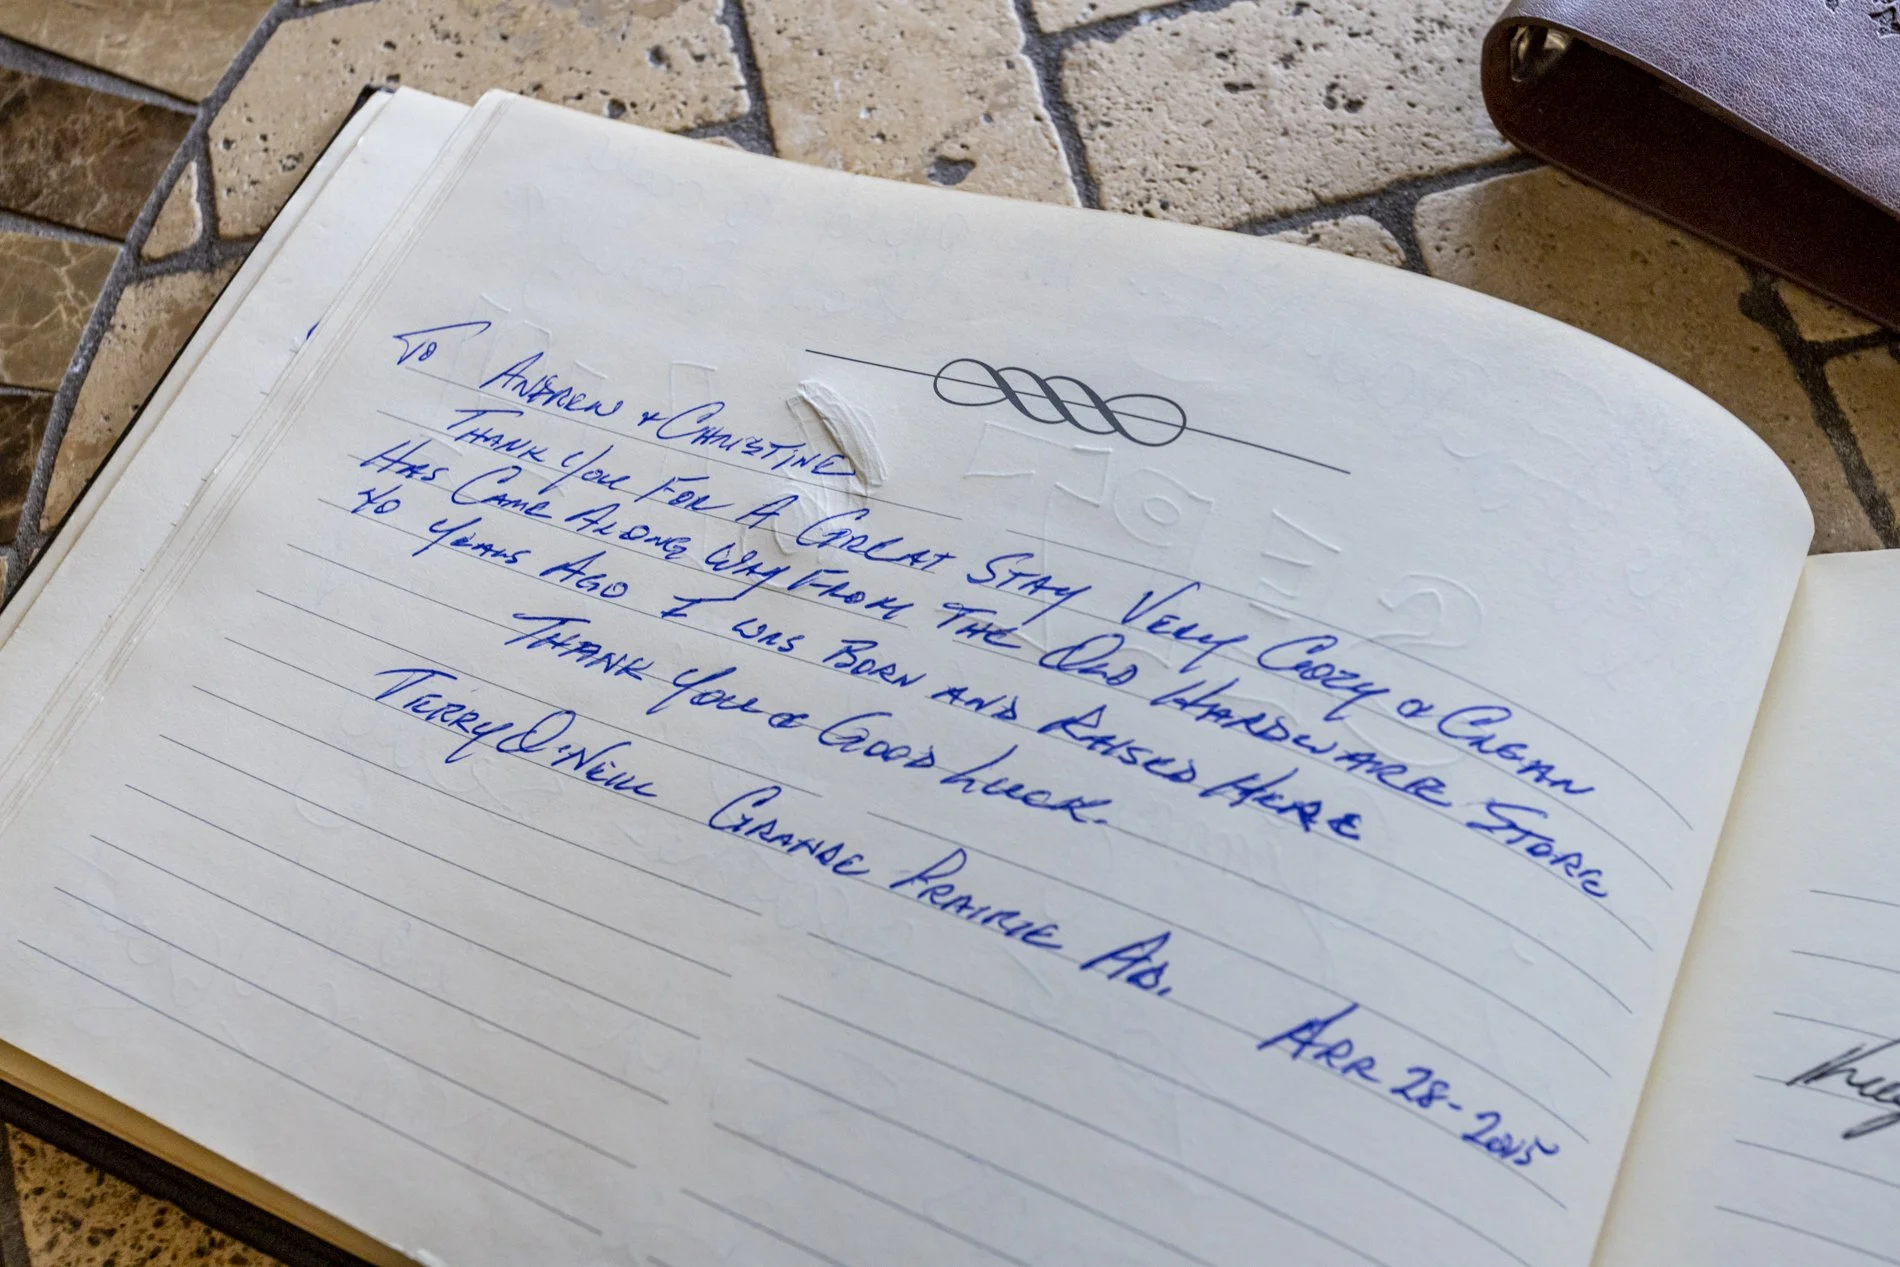 To Andrew & Christine
Thank You For A Great Stay Very Cozy & Clean
Has Came Along Way From The Old Hardware Store
40 Years Ago I was Born and Raised Here
Thank You & Good Luck.
Terry O'Neill Grande Prairie AB. Apr 28-2015